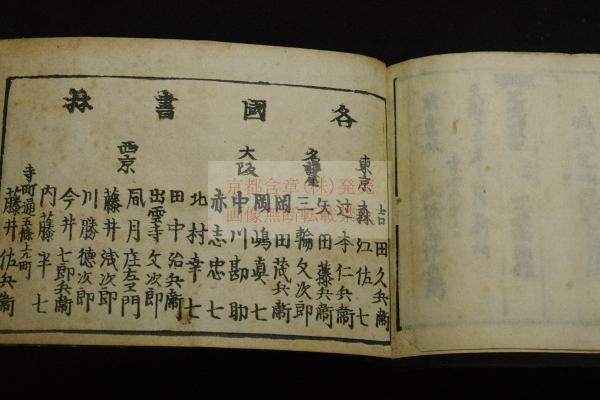 各國書林
東京
吉田久兵衞
森江佐七
辻本仁兵衞
名護屋
矢田藤兵衞
三輪文次郎
岡田茂兵衞
大阪
岡嶋真七
中川勘助
赤志忠七
北村幸七
西京
田中治兵衞
出雲寺文次郎
風月庄左ヱ門
藤井浅次郎
川勝徳次郎
今井七郎兵衞
内藤半七
寺町通五條上ル町
藤井佐兵衞
京都含章(株)発売
画像無断転載禁止